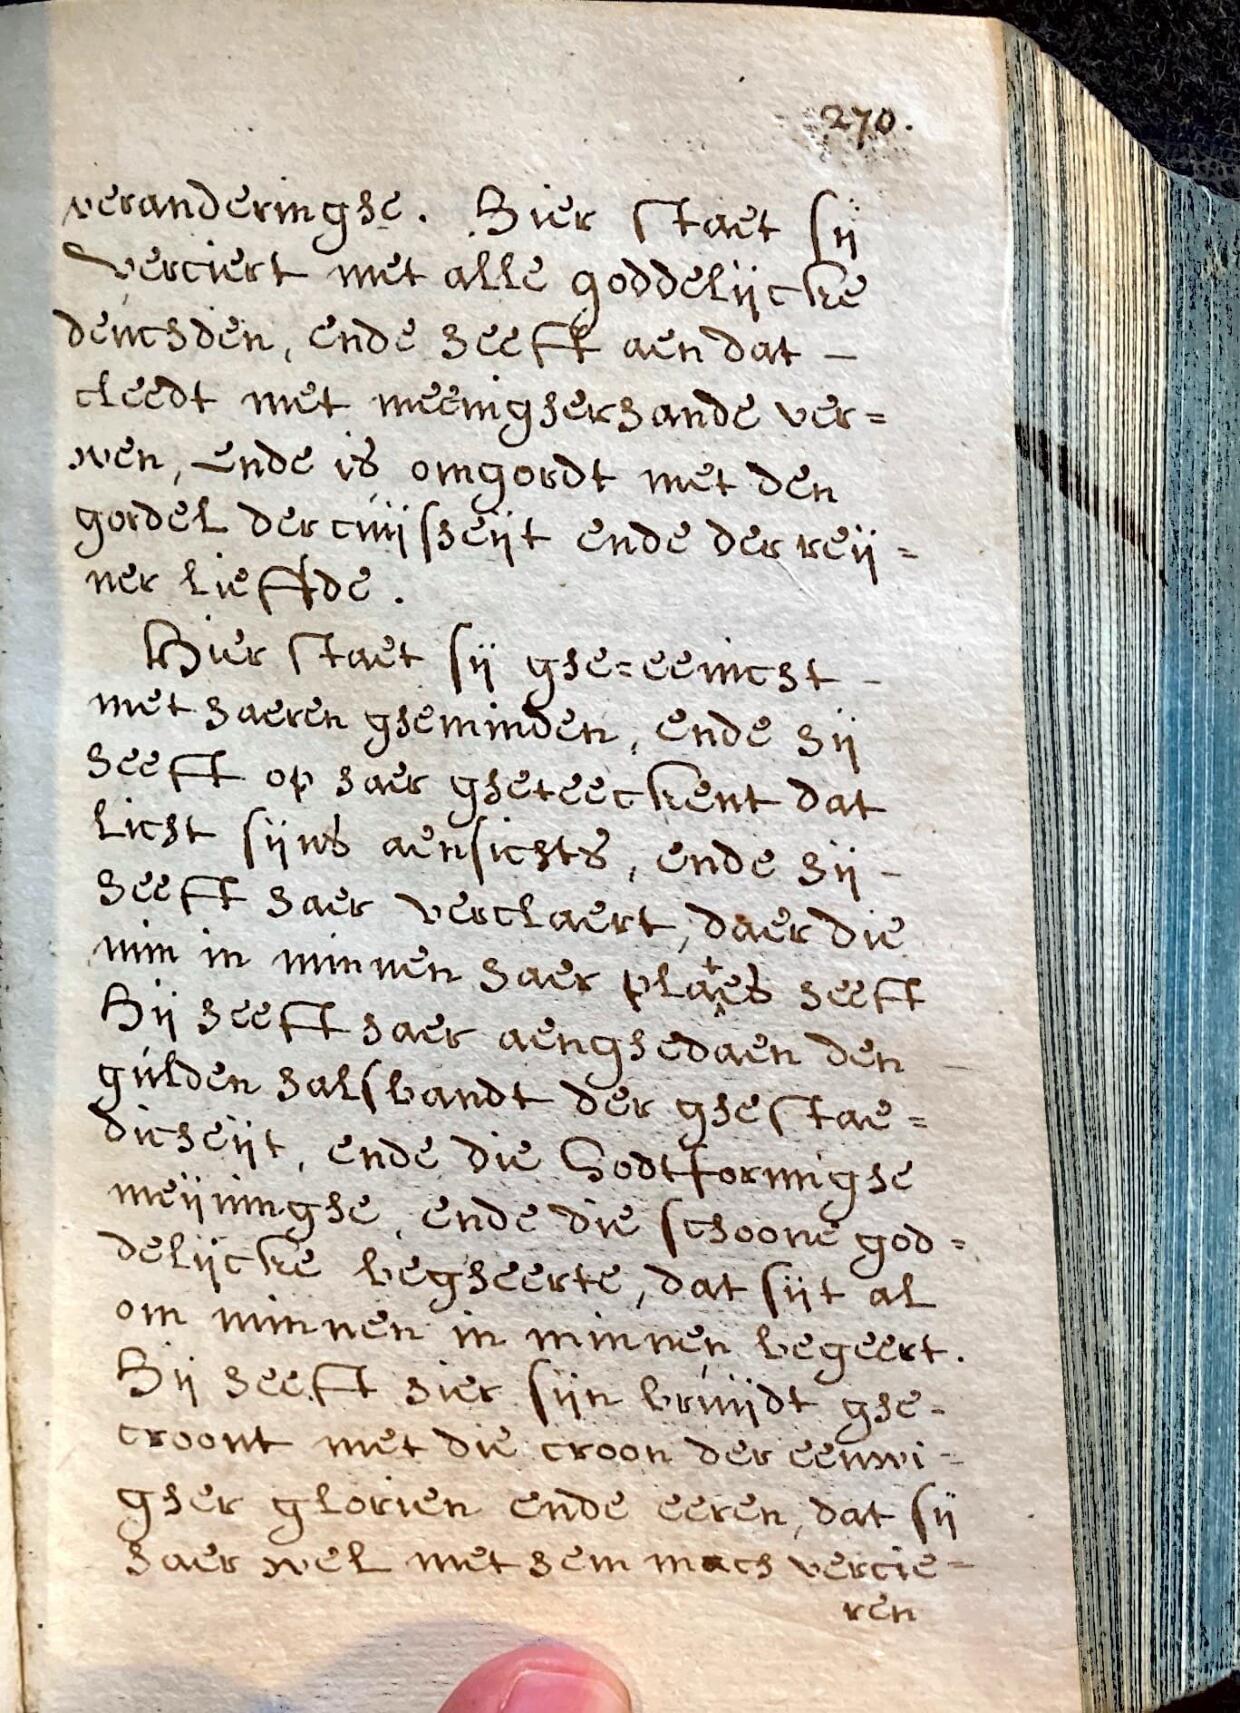 270.
veranderinghe. Hier staet sij
verciert met alle goddelijcke
deuchden, ende heeft aen dat –
cleedt met meenigherhande ver=
wen, ende is omgordt met den
gordel der cuijsheijt ende der reij=
ner liefde.
Hier staet sij ghe=eenicht –
met haeren gheminden, ende hij
heeft op haer gheteeckent dat
licht sijns aensichts, ende hij –
heeft haer verclaert, daer die
min in minnen haer plaets heeft
Hij heeft haer aenghedaen den –
gúlden halsbandt der ghestae=
dicheijt, ende die Godtformighe
meijninghe, ende die schoone god=
delijcke begheerte, dat sijt al
om minnen in minnen begeert.
Hij heeft hier sijn bruijdt ghe=
croont met die croon der eeuwi=
gher glorien ende eeren, dat sij
haer wel met hem mach vercie=
ren